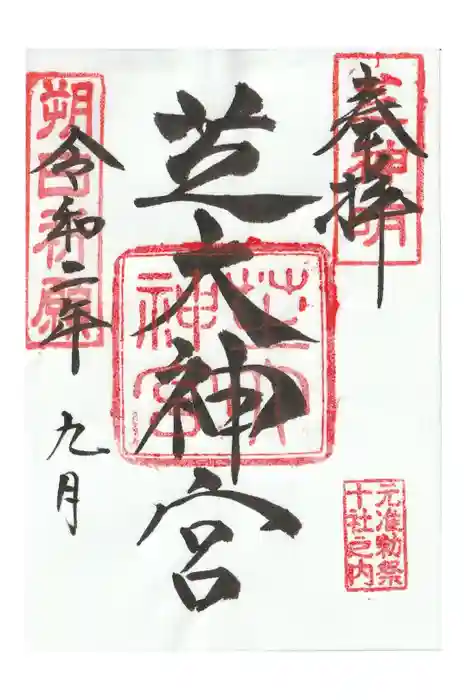 奉拝
芝神明
芝大神宮
芝大
神宮
元准勅祭
十社之内
朔日祈願
令和二年
九月